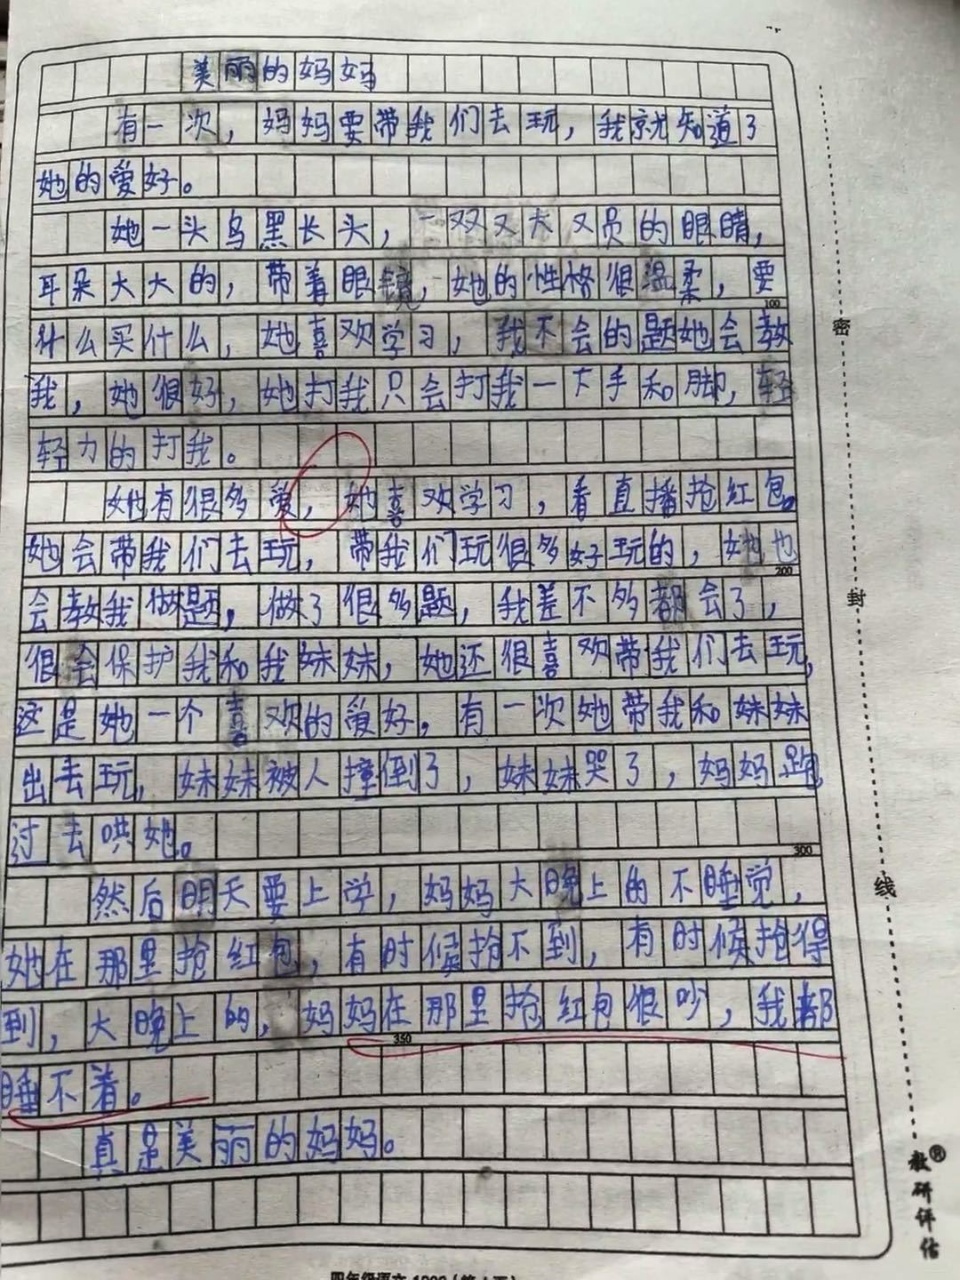 美丽的妈妈
有一次，妈妈要带我们去玩，我就知道了
她的爱好。
她一头乌黑长头，一双又大又员的眼睛，
耳朵大大的，带着眼镜，她的性格很温柔，要
什么买什么，她喜欢学习，我不会的题她会教
100
我，她很好，她打我只会打我一下手和脚，轻
轻力的打我。
她有很多爱，她喜欢学习，看直播抢红包。
她会带我们去玩，带我们玩很多好玩的，她也
200
会教我做题，做了很多题，我差不多都会了，
很会保护我和我妹妹，她还很喜欢带我们去玩，
这是她一个喜欢的爱好。有一次她带我和妹妹
出去玩，妹妹被人撞倒了，妹妹哭了，妈妈跑
过去哄她。
300
然后明天要上学，妈妈大晚上的不睡觉，
她在那里抢红包，有时候抢不到，有时候抢得
到，大晚上的，妈妈在那里抢红包很吵，我都
350
睡不着。
真是美丽的妈妈。
密
封
线
教研评估